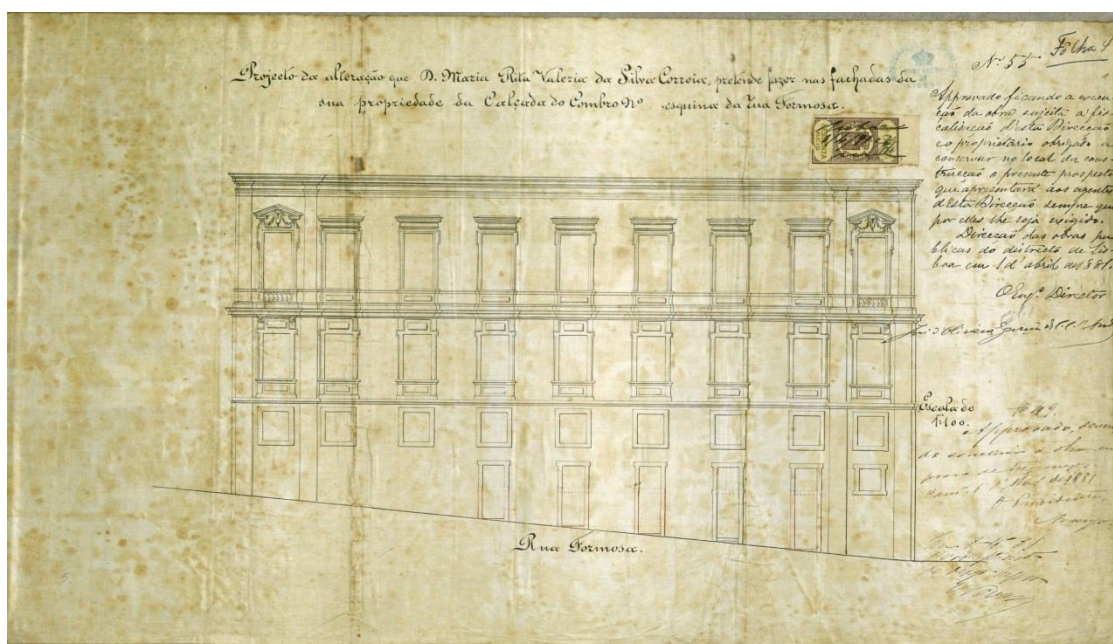 Projecto da alteração que D. Maria Rita Valeria da Silva Correia, pretende fazer nas fachadas da
sua propriedade da Calçada do Combro Nº esquina da rua Formosa.
Folha 4
Nº 55
Approvado ficando a execu-
ção da obra sujeita á fis-
calisação d'esta Direcção
e o proprietario obrigado a
conservar no local da cons-
trucção o presente prospecto
que apresentará aos agentes
d'esta Direcção sempre que
por elles lhe seja exigido.
Direcção das obras pu-
blicas do districto de Lis-
boa em 1 d'abril de 1881.
O Engº Director
Escala de
1:100.
Approvado, deven-
do concluir a obra no
de 1881
O Presidente
Rua Formosa.